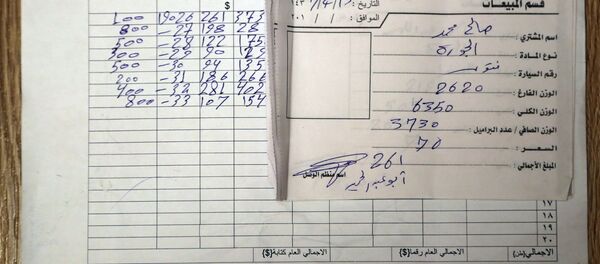 قسم المبيعات
التاريخ : / ١٤ / ١٤٣
الموافق : / / ٢٠١
اسم المشتري : صالح محمد
نوع المادة :
رقم السيارة :
الوزن الفارغ : 2620
الوزن الكلي : 6350
الوزن الصافي / عدد البراميل : 3730
السعر : 70
المبلغ الأجمالي : 261
اسم منظم الوصل
$
100 19026 261 373
800 -27 198 28
500 -28 122 175
300 90
500 -30 94 135
200 -31 186 266
400 -32 281 402
800 -33 107 154
١٧
١٨
١٩
٢٠
الاجمالي (طن)
الاجمالي العام رقما {$}
الاجمالي العام كتابة {$}